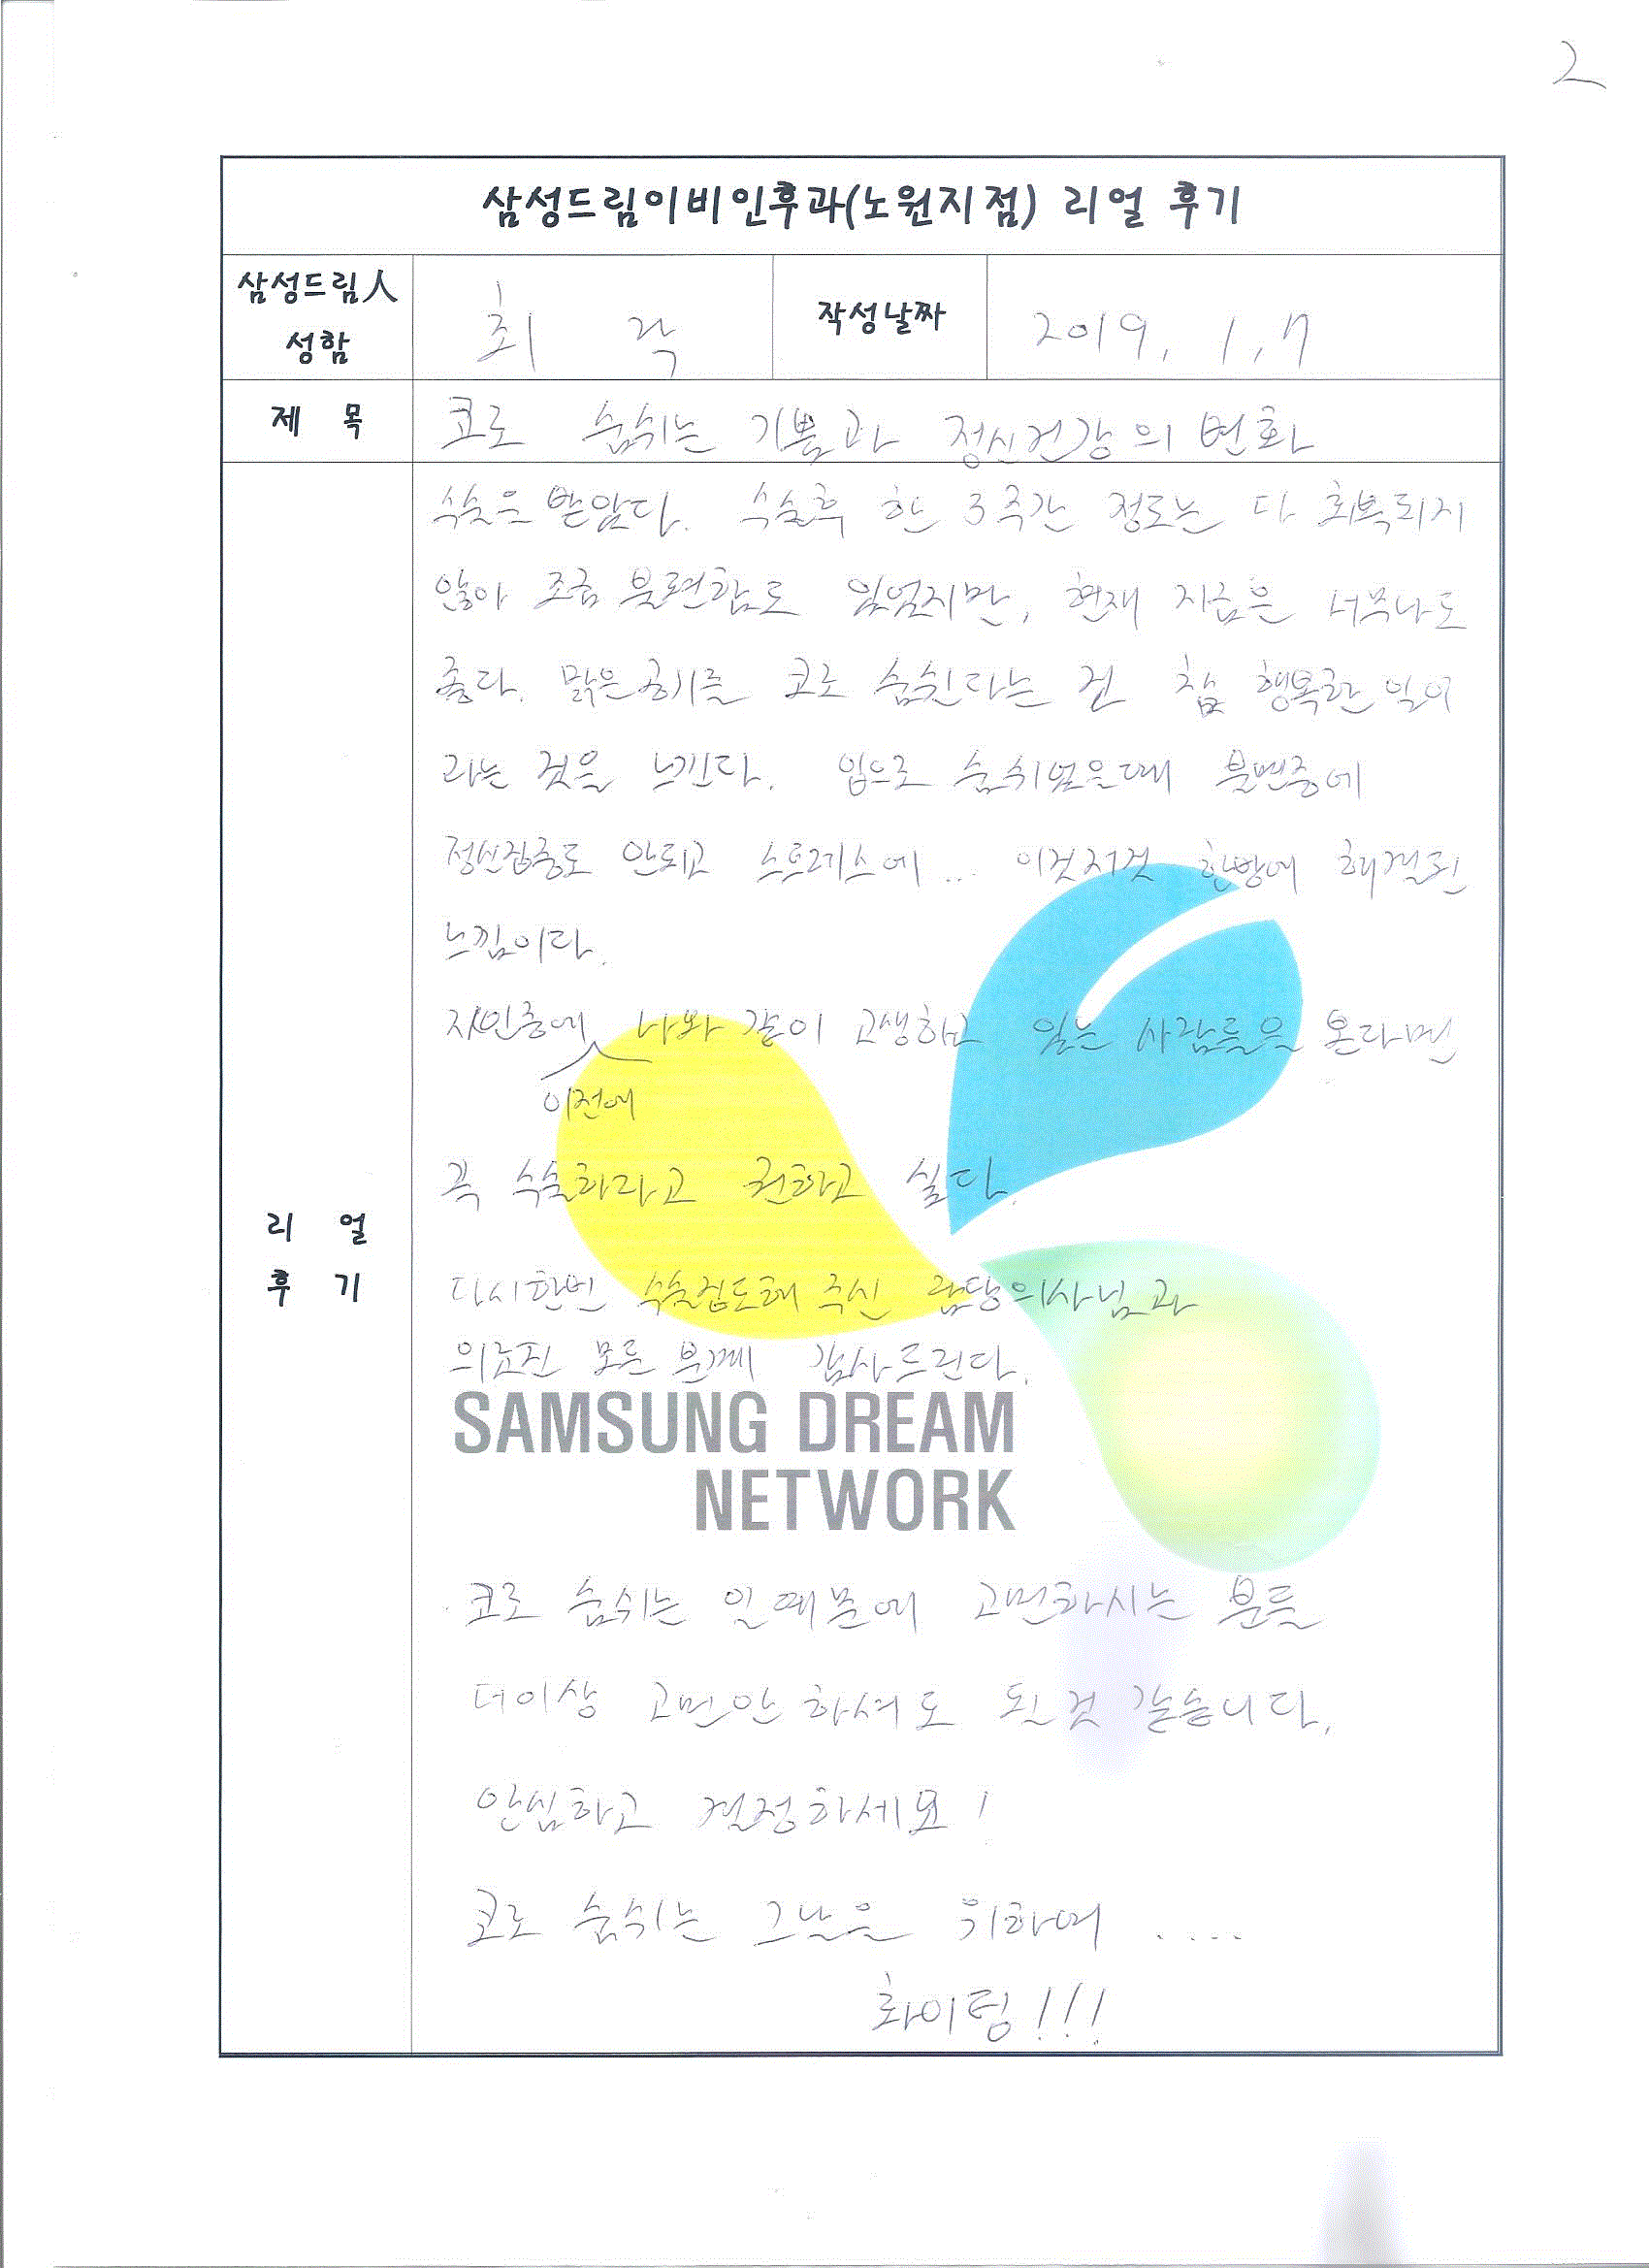 2
삼성드림이비인후과(노원지점) 리얼 후기
삼성드림人
성함
최 락
작성날짜
2019. 1. 7
제 목
코로 숨쉬는 기쁨과 정신건강의 변화
수술은 받았다. 수술후 한 3주간 정도는 다 회복되지
않아 조금 불편함도 있었지만, 현재 지금은 너무나도
좋다. 맑은공기를 코로 숨쉰다는 건 참 행복한 일이
라는 것을 느낀다. 입으로 숨쉬었을때 불면증에
정신집중도 안되고 스트레스에... 이것저것 한방에 해결된
느낌이다.
지인중에 나와 같이 고생하고 있는 사람들을 본다면
이전에
꼭 수술하라고 권하고 싶다.
리 얼
후 기
다시한번 수술집도해 주신 담당의사님과
의료진 모든 분께 감사드린다.
SAMSUNG DREAM
NETWORK
코로 숨쉬는 일때문에 고민하시는 분들
더이상 고민안하셔도 될것 같습니다.
안심하고 결정하세요!
코로 숨쉬는 그날을 위하여 ....
화이팅!!!